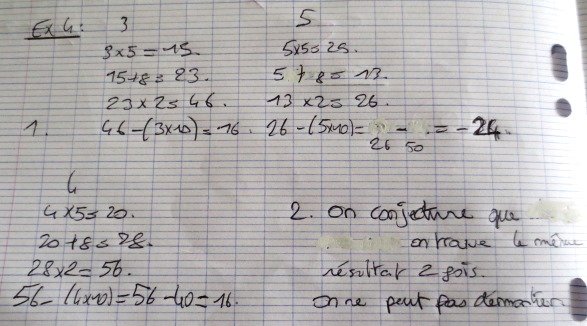 Ex 4: 3
3×5 = 15.
15+8 = 23.
23×2 = 46.
1. 46-(3×10) = 16.
5
5×5 = 25.
5 + 8 = 13.
13×2 = 26.
26-(5×10) = 26 - 50 = -24.
4
4×5 = 20.
20+8 = 28.
28×2 = 56.
56-(4×10) = 56-40 = 16.
2. On conjecture que
on trouve le même
résultat 2 fois.
on ne peut pas démontrer